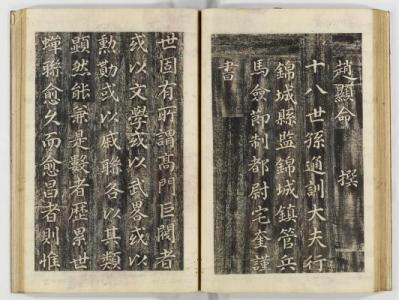 趙顯命 撰
十八世孫通訓大夫行
錦城縣監錦城鎮管兵
馬僉節制都尉宅奎謹
書
世固有所謂高門巨閥者
或以文學或以武畧或以
勲勩或以戚聯各以其類
顯然能兼是數者歷累世
蟬聯愈久而愈昌者則惟